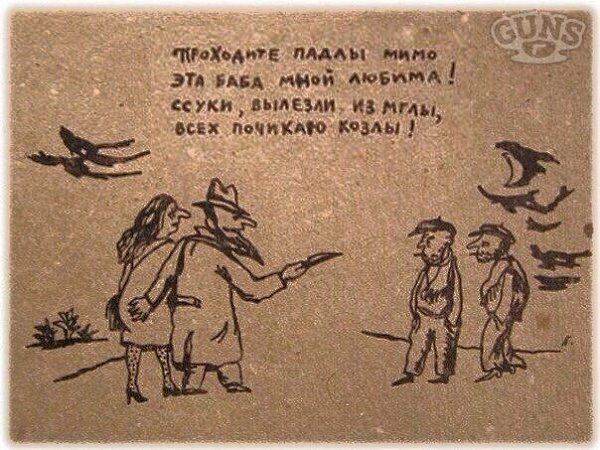 GUNS
ПРОХОДИТЕ ПАДЛЫ МИМО
ЭТА БАБА МНОЙ ЛЮБИМА!
ССУКИ, ВЫЛЕЗЛИ ИЗ МГЛЫ,
ВСЕХ ПОЧИКАЮ КОЗЛЫ!